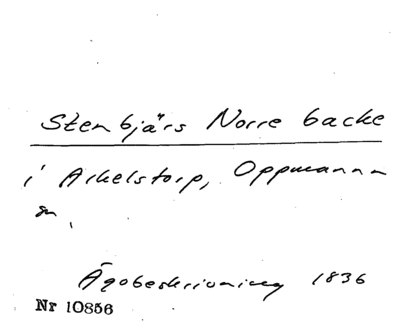 Stenbjärs Norre backe
i Arkelstorp, Oppmanna
sn,
Ägobeskrivning 1836
Nr 10856